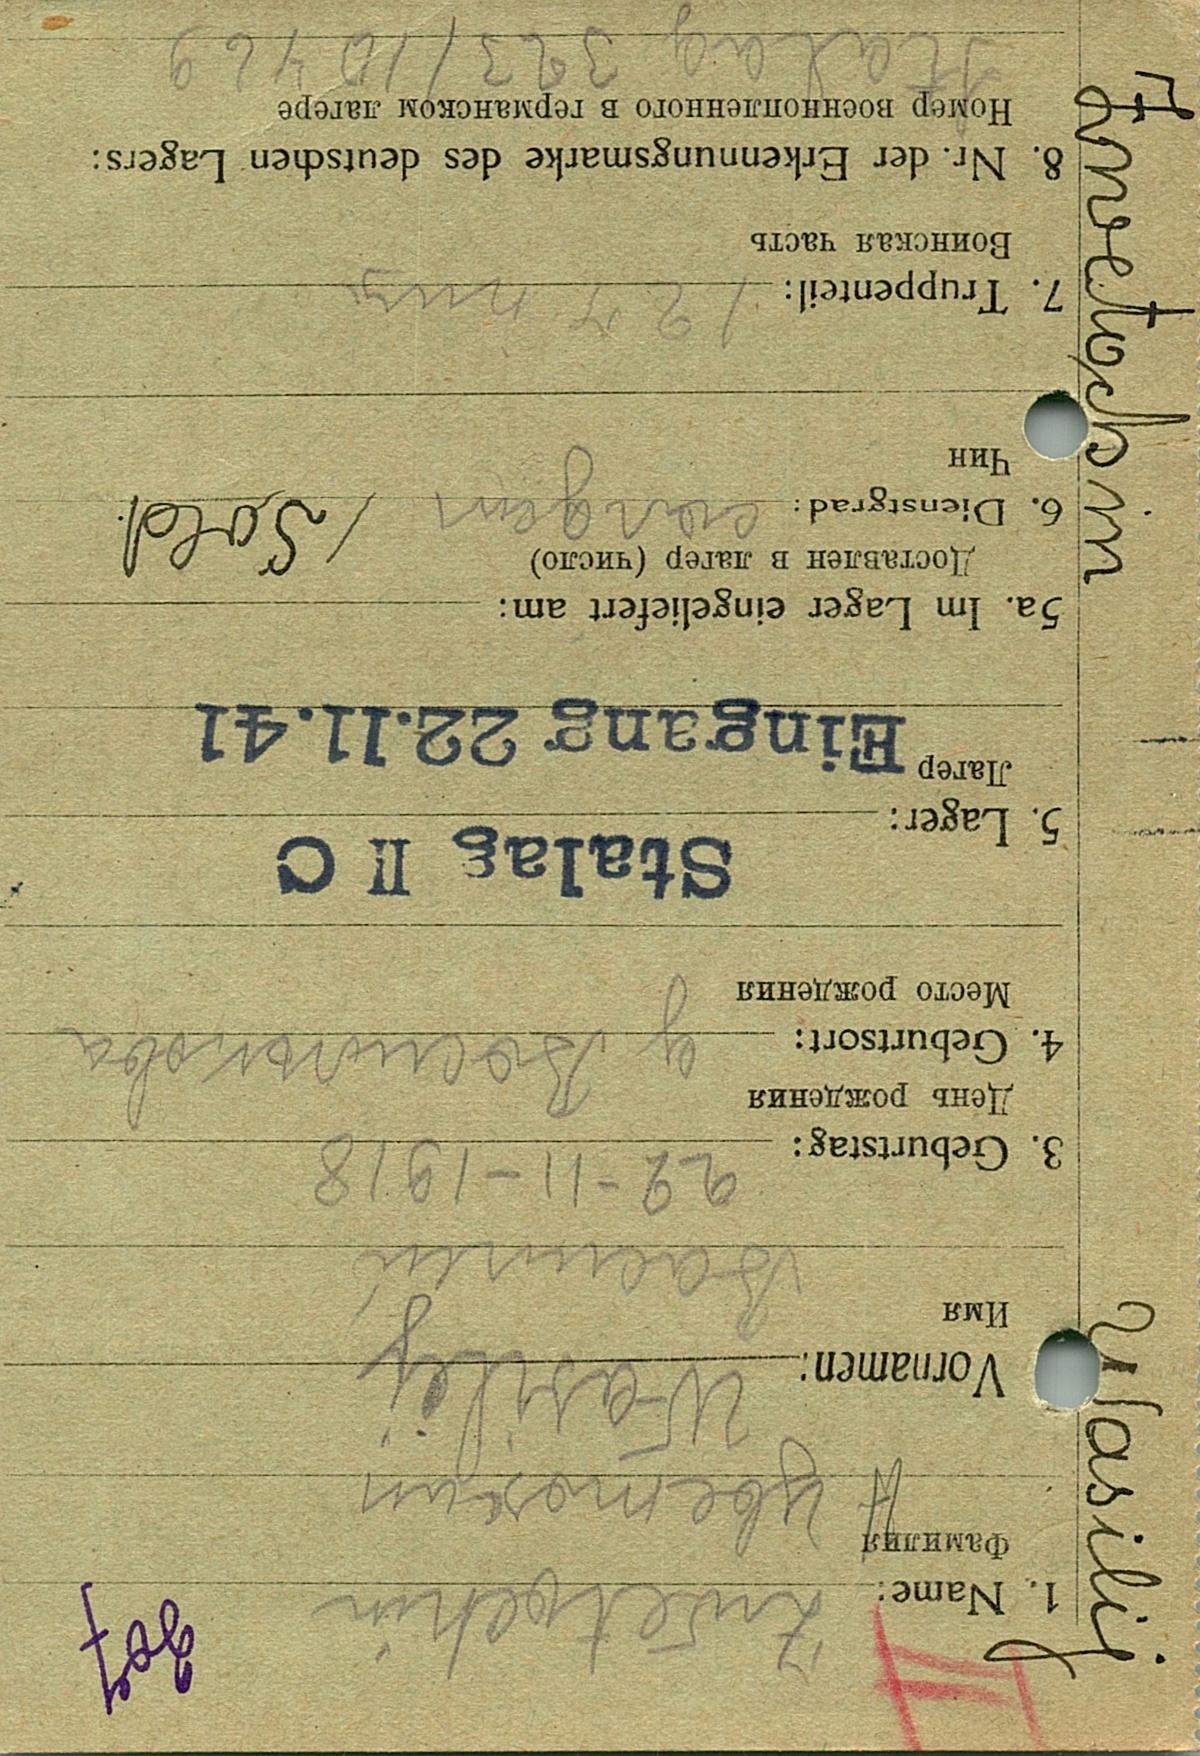 Zwetochin Wasilij
gest
II
1. Name: Zwetochin
Фамилия
Цветохин
Vornamen: Wasilij
Имя
Василий
3. Geburtstag: 22-11-1918
День рождения
4. Geburtsort:
Место рождения
Stalag II C
5. Lager:
Лагер
Eingang 22.11.41
5a. Im Lager eingeliefert am:
Доставлен в лагер (число)
6. Dienstgrad: / Sold.
Чин
7. Truppenteil: 127
Воинская часть
8. Nr. der Erkennungsmarke des deutschen Lagers:
Номер военнопленного в германском лагере
Stalag 323/10469